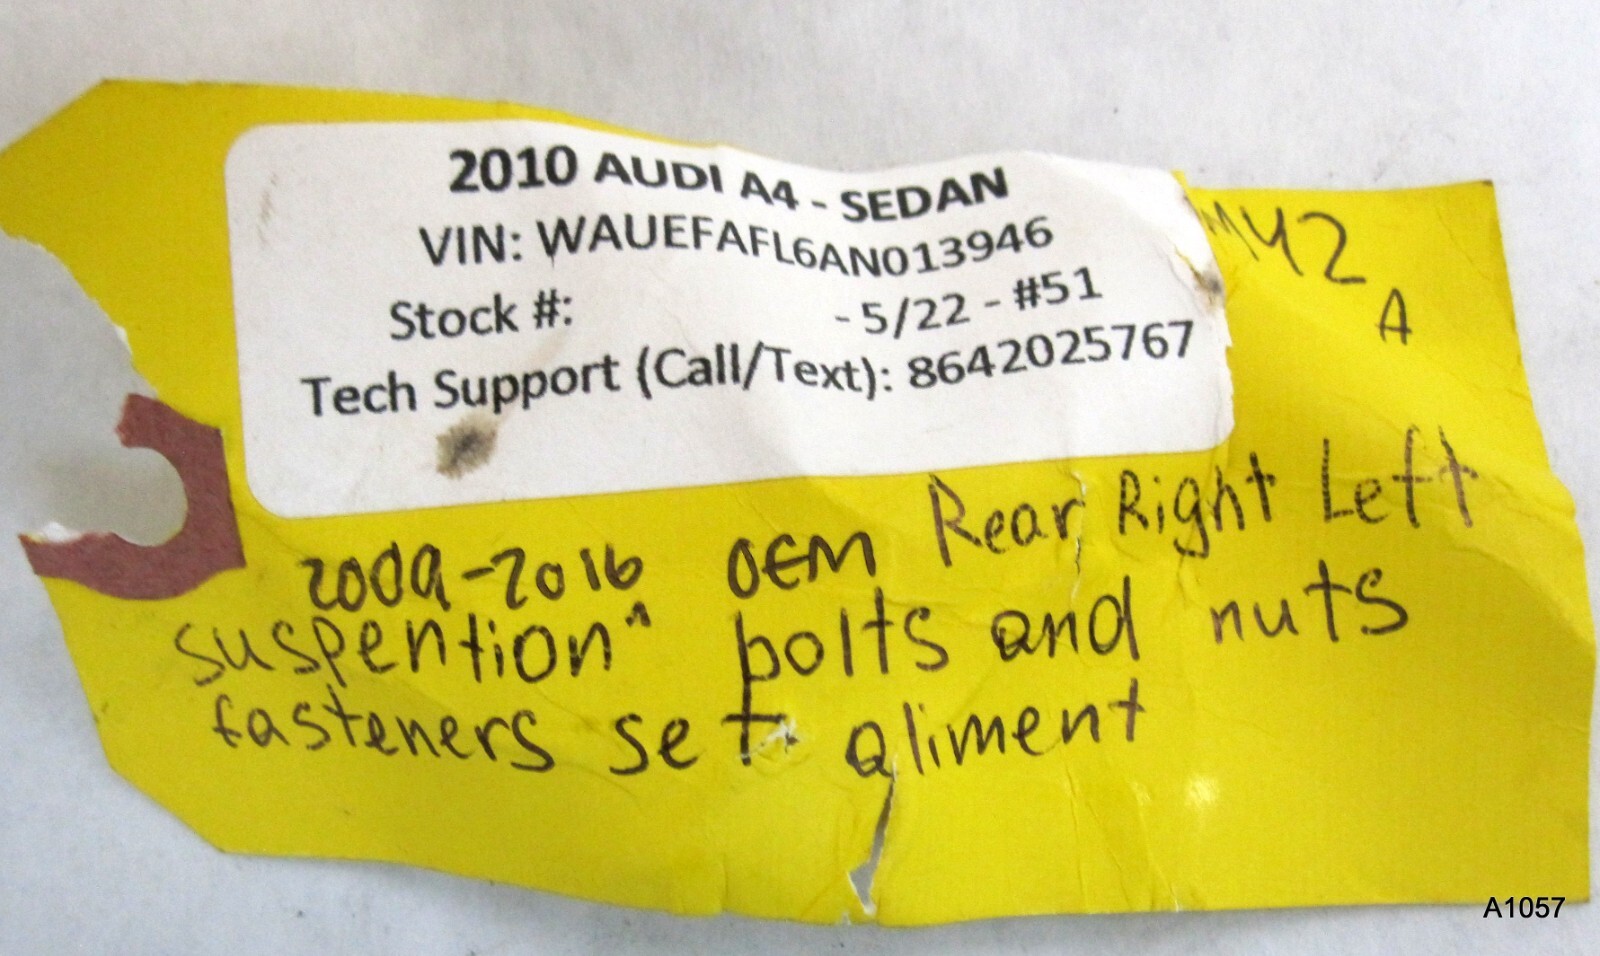 2010 AUDI A4 - SEDAN
VIN: WAUEFAFL6AN013946
Stock #: - 5/22 - #51
Tech Support (Call/Text): 8642025767
MY2
A
2009-2016 OEM Rear Right Left
suspention bolts and nuts
fasteners set aliment
A1057